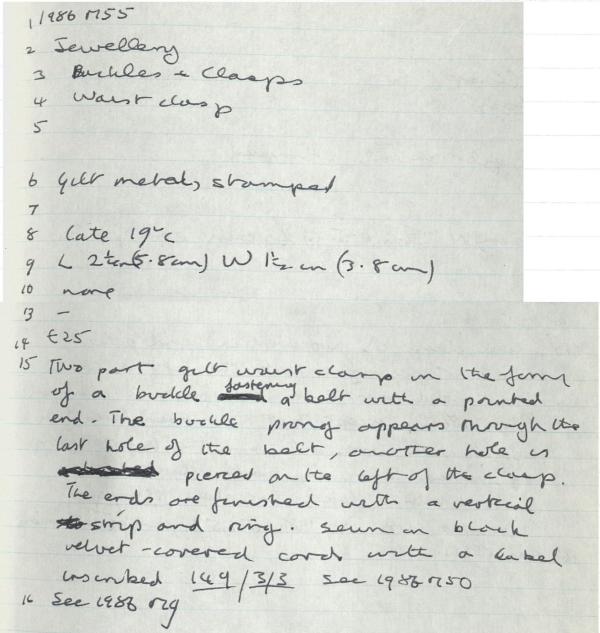 1 1986 M55
2 Jewellery
3 Buckles + Clasps
4 Waist clasp
5
6 Gilt metal, stamped
7
8 Late 19th c
9 L 2¼in (5.8cm) W 1½in (3.8cm)
10 none
13 –
14 £25
15 Two part gilt waist clasp in the form
of a buckle fastening a belt with a pointed
end. The buckle prong appears through the
last hole of the belt, another hole is
pierced on the left of the clasp.
The ends are finished with a vertical
strip and ring. Sewn on black
velvet-covered cords with a label
inscribed 149/3/3 See 1986 M50
16 See 1986 M9